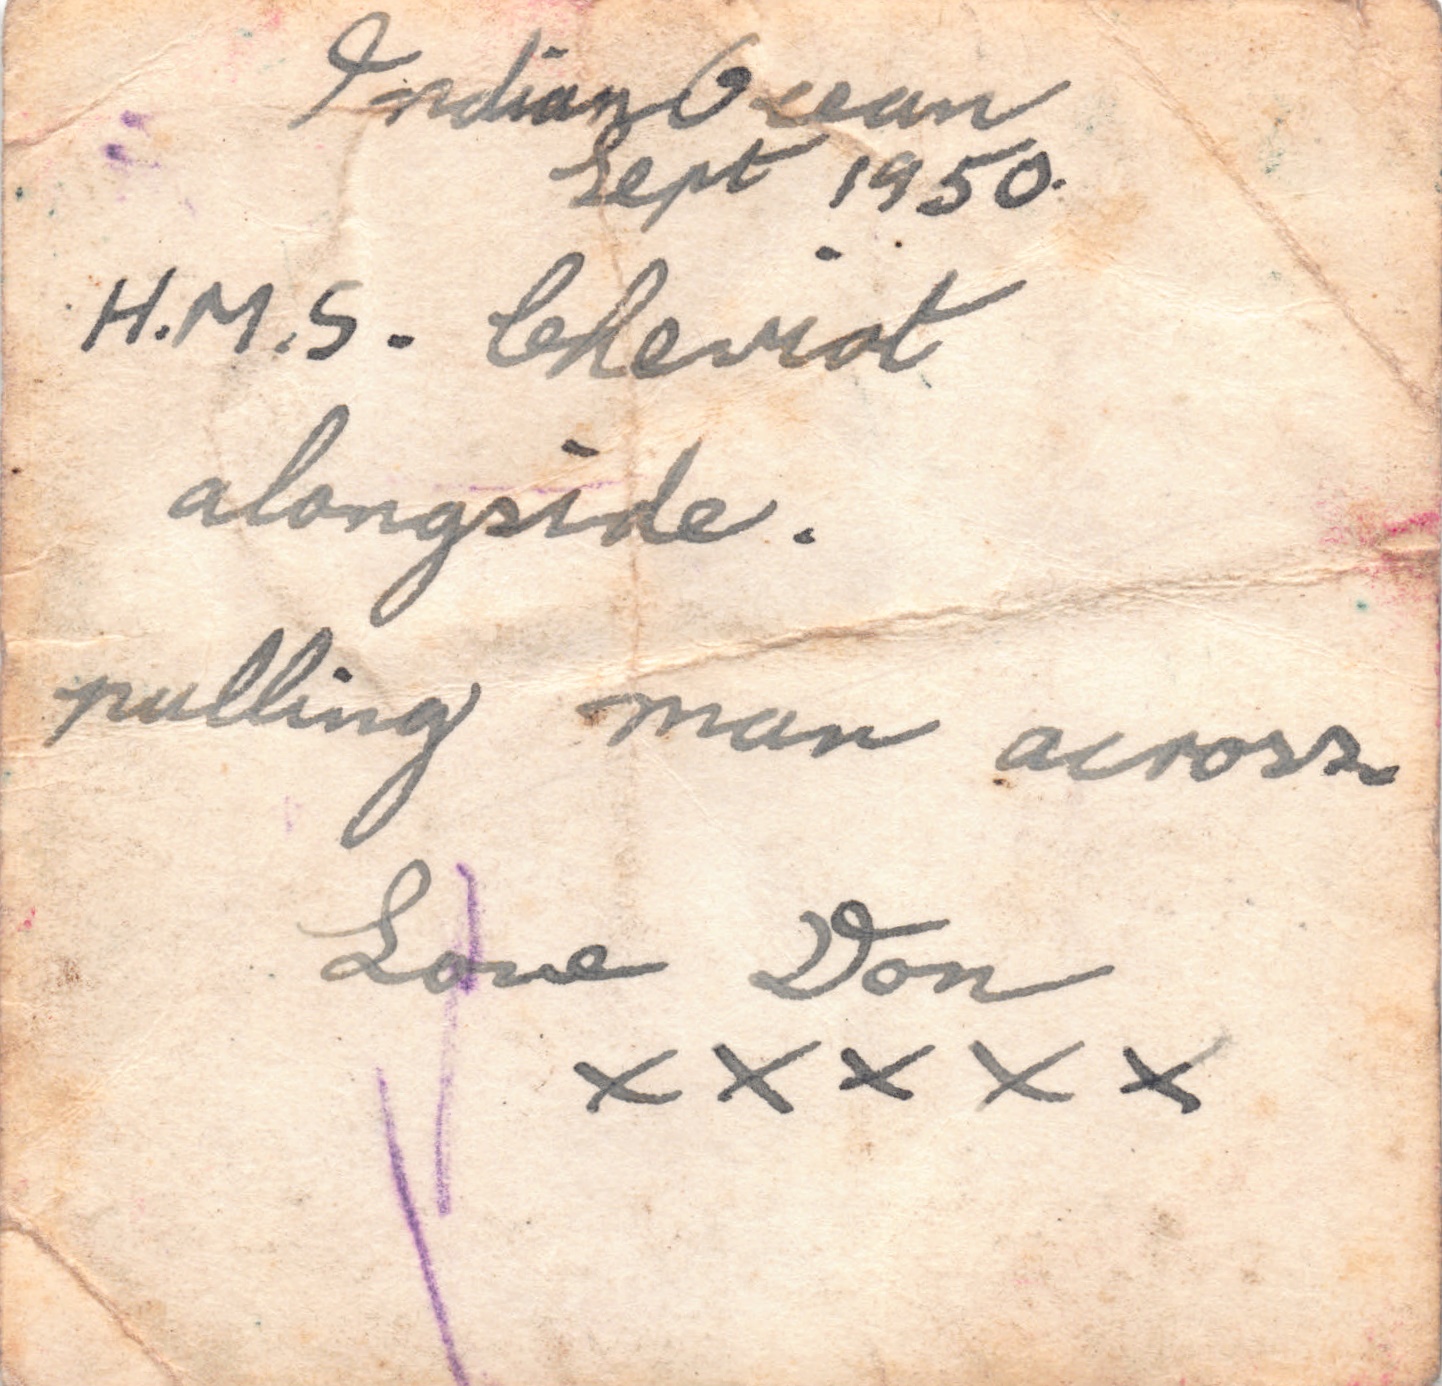 Indian Ocean
Sept 1950.
H.M.S. Cheviot
alongside.
pulling man across.
Love Don
x x x x x